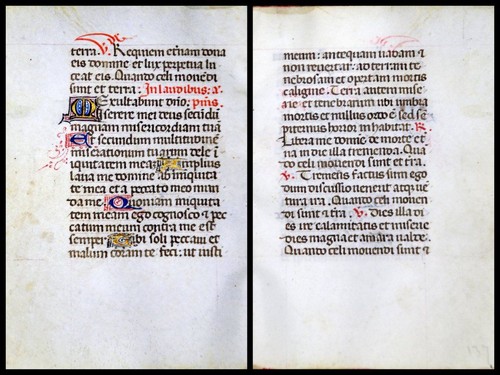 terra. V. Requiem eternam dona
eis domine et lux perpetua lu
ceat eis. Quando celi movendi
sunt et terra: In laudibus: a.
Exultabunt dño; p̃us.
Miserere mei deus secundũ
magnam misericordiam tuã
Et secundum multitudinẽ
miserationum tuarum dele i
iquitatem meam Amplius
lava me domine ab iniquita
te mea et a peccato meo mun
da me Quoniam iniquita
tem meam ego cognosco & pec
catum meum contra me est
semper Tibi soli peccavi et
malum coram te feci: ut iusti
meum: antequam vadam &
non revertar: ad terram te
nebrosam et opertam mortis
caligine. Terram miserie
et tenebrarum ubi umbra
mortis et nullus ordo & sed sẽ
piternus horror inhabitat. R.
Libera me domine de morte et
na in die illa tremenda. Quã
do celi movendi sunt et tera.
V. Tremens factus sum ego
dum discussio venerit atque vẽ
tura ira. Quando celi moven
di sunt & tera. V. Dies illa di
es ire calamitatis et miserie
dies magna et amara valde.
Quando celi movendi sunt &
137